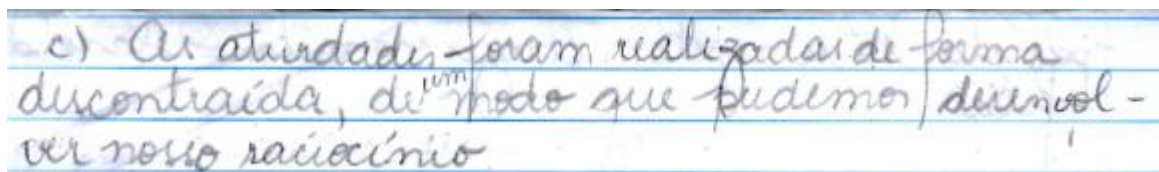 c) As atividades foram realizadas de forma
descontraída, de um modo que pudemos desenvol-
ver nosso raciocínio